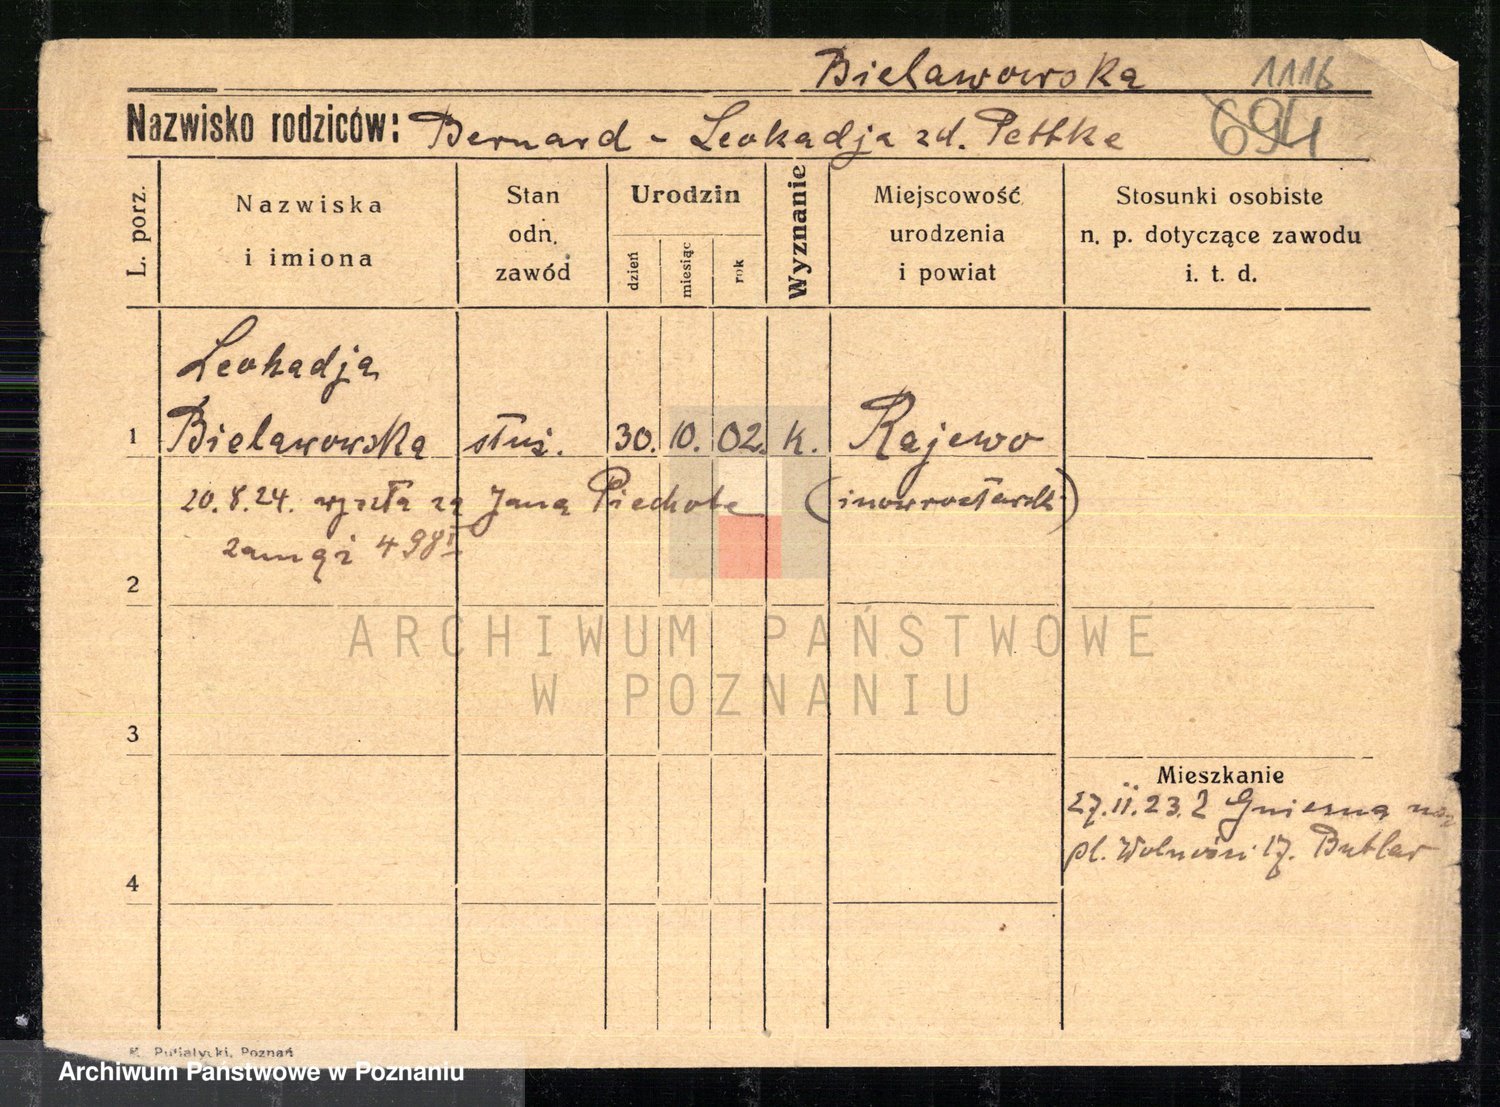 Bielawowska 1116
Nazwisko rodziców: Bernard - Leokadja zd. Pettke 694
L. porz.
Nazwiska
i imiona
Stan
odn.
zawód
Urodzin
dzień
miesiąc
rok
Wyznanie
Miejscowość
urodzenia
i powiat
Stosunki osobiste
n. p. dotyczące zawodu
i. t. d.
Leokadja
1 Bielawowska służ. 30. 10. 02. k. Rajewo
20.8.24. wyszła za Jana Piechotę (inowrocławski)
zamąż 498 I
2
ARCHIWUM PAŃSTWOWE
W POZNANIU
3
Mieszkanie
27.II.23. z Gniezna
pl. Wolności 17. Butlar
4
K. Putiatycki, Poznań
Archiwum Państwowe w Poznaniu